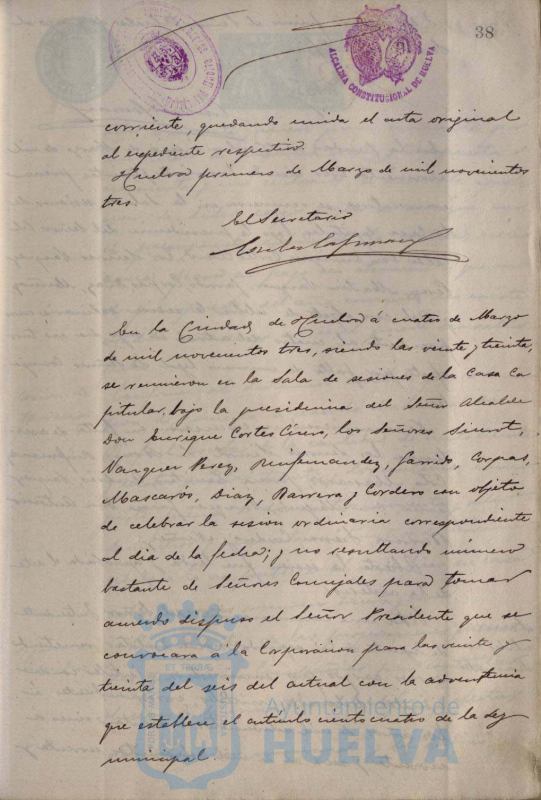 38
ALCALDIA CONSTITUCIONAL DE HUELVA
corriente, quedando unida el acta original
al expediente respectivo.
Huelva primero de Marzo de mil novecientos
tres.
El Secretario
En la Ciudad de Huelva á cuatro de Marzo
de mil novecientos tres, siendo las veinte y treinta,
se reunieron en la Sala de sesiones de la Casa Ca
pitular, bajo la presidencia del Señor Alcalde
Don Enrique Cortes, los Señores
Vazquez Perez, Garrido, Corpas,
Mascarós, Diaz, Barrera y Cordero con objeto
de celebrar la sesion ordinaria correspondiente
al dia de la fecha; y no resultando número
bastante de Señores Concejales para tomar
acuerdo dispuso el Señor Presidente que se
convocara á la Corporacion para las veinte y
treinta del seis del actual con la advertencia
que establece el artículo ciento cuatro de la ley
municipal.
Ayuntamiento de
HUELVA